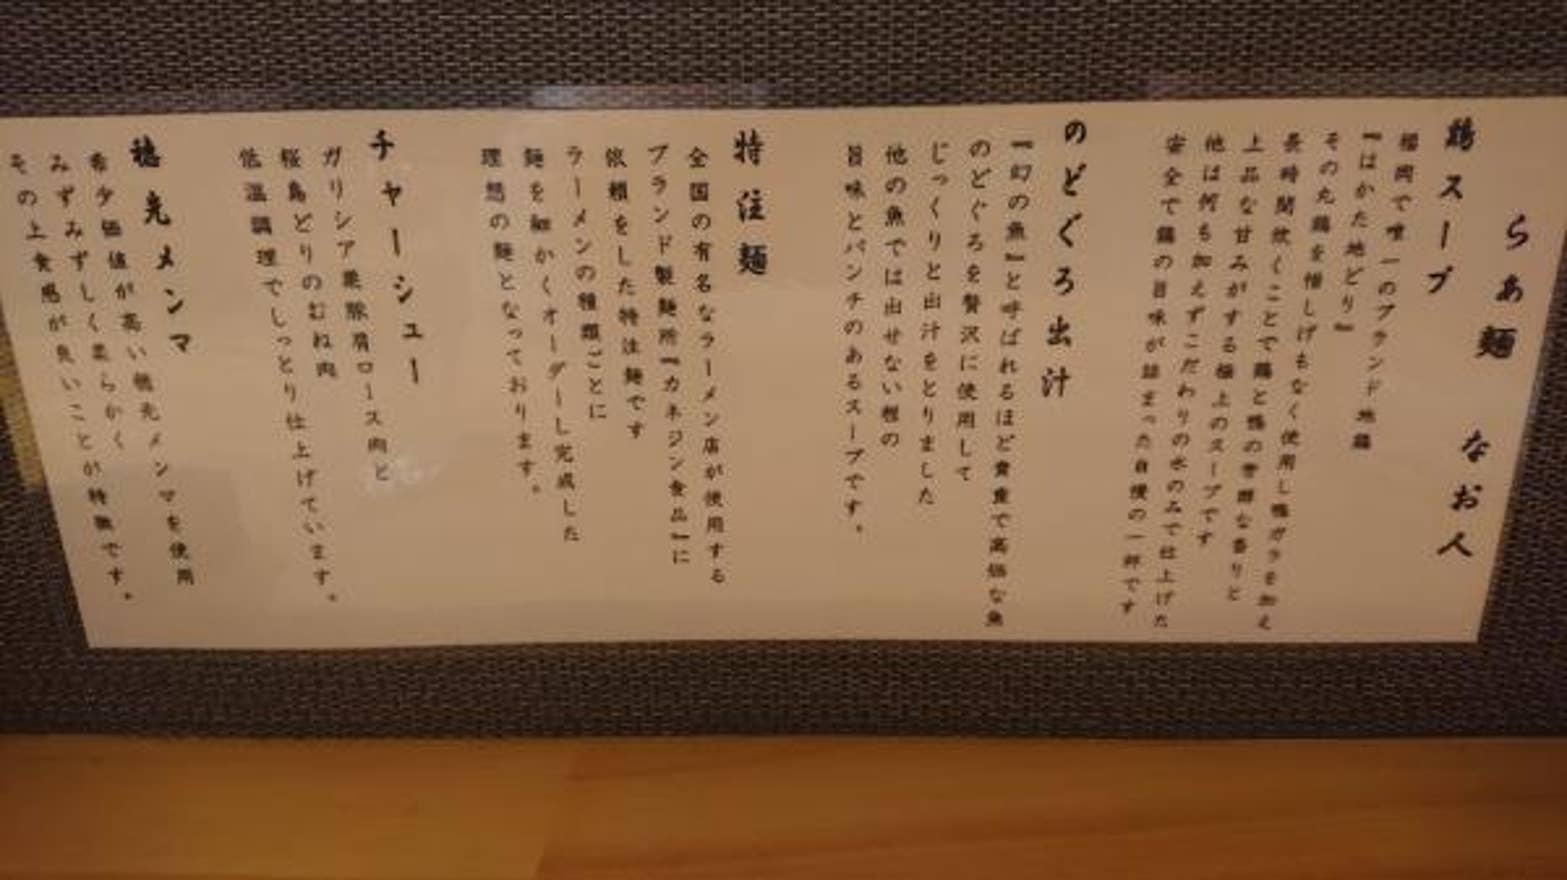 らぁ麺 なお人
鶏スープ
福岡で唯一のブランド地鶏
『はかた地どり』
その丸鶏を惜しげもなく使用し鴨ガラを加え
長時間炊くことで鶏と鴨の芳醇な香りと
上品な甘みがする極上のスープです
他は何も加えずこだわりの水のみで仕上げた
安全で鶏の旨味が詰まった自慢の一杯です
のどぐろ出汁
『幻の魚』と呼ばれるほど貴重で高価な魚
のどぐろを贅沢に使用して
じっくりと出汁をとりました
他の魚では出せない程の
旨味とパンチのあるスープです。
特注麺
全国の有名なラーメン店が使用する
ブランド製麺所『カネジン食品』に
依頼をした特注麺です
ラーメンの種類ごとに
麺を細かくオーダーし完成した
理想の麺となっております。
チャーシュー
ガリシア栗豚肩ロース肉と
桜島どりのむね肉
低温調理でしっとり仕上げています。
穂先メンマ
希少価値が高い穂先メンマを使用
みずみずしく柔らかく
その上食感が良いことが特徴です。